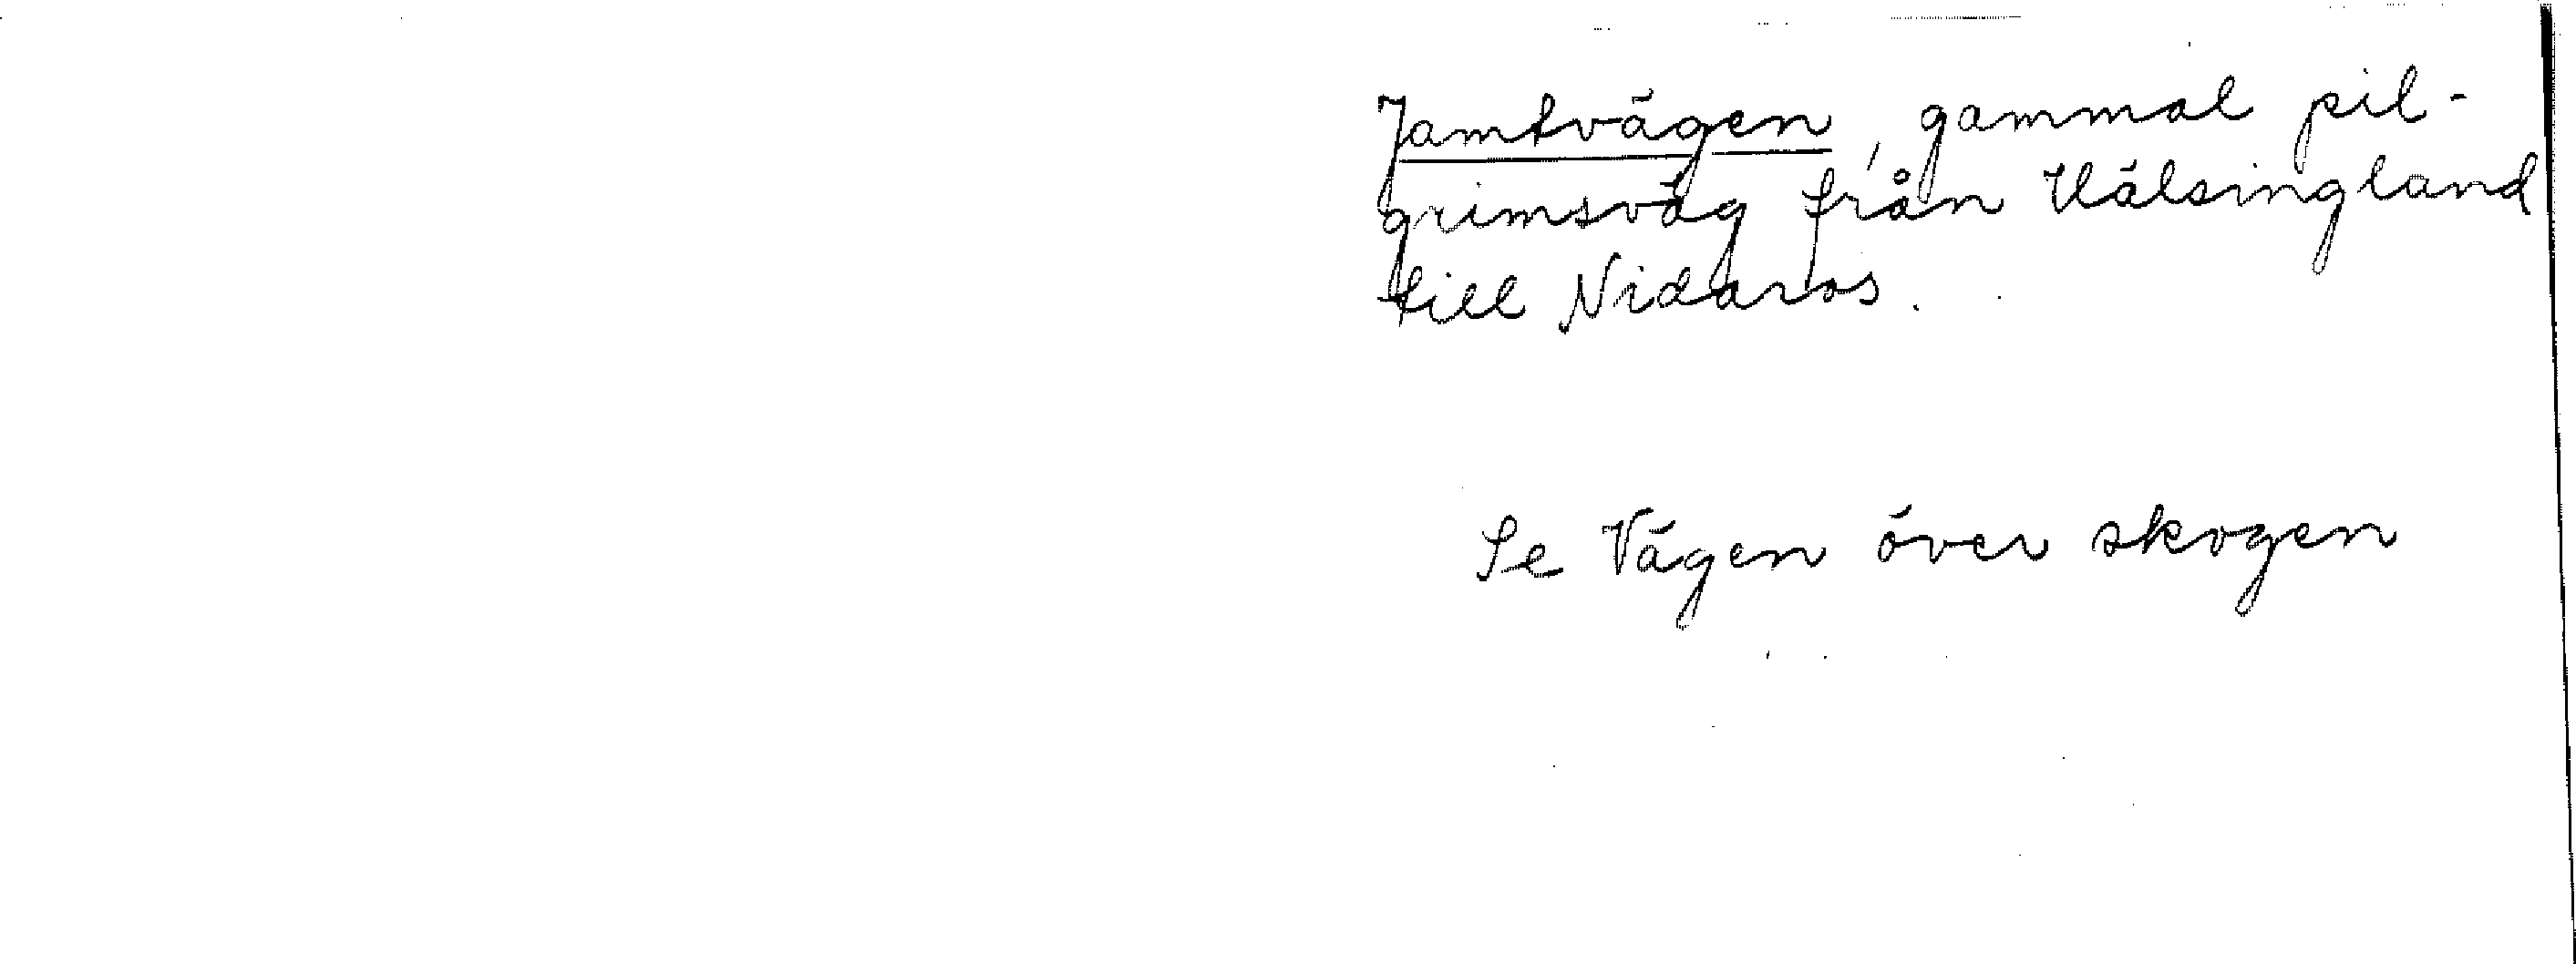 Jamtvägen, gammal pil-
grimsväg från Hälsingland
till Nidaros.
Se Vägen över skogen